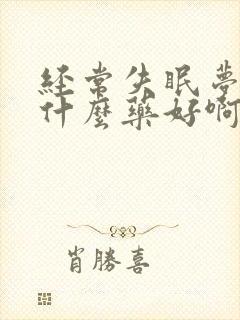 經常失眠夢
什麼藥好啊
肖勝喜